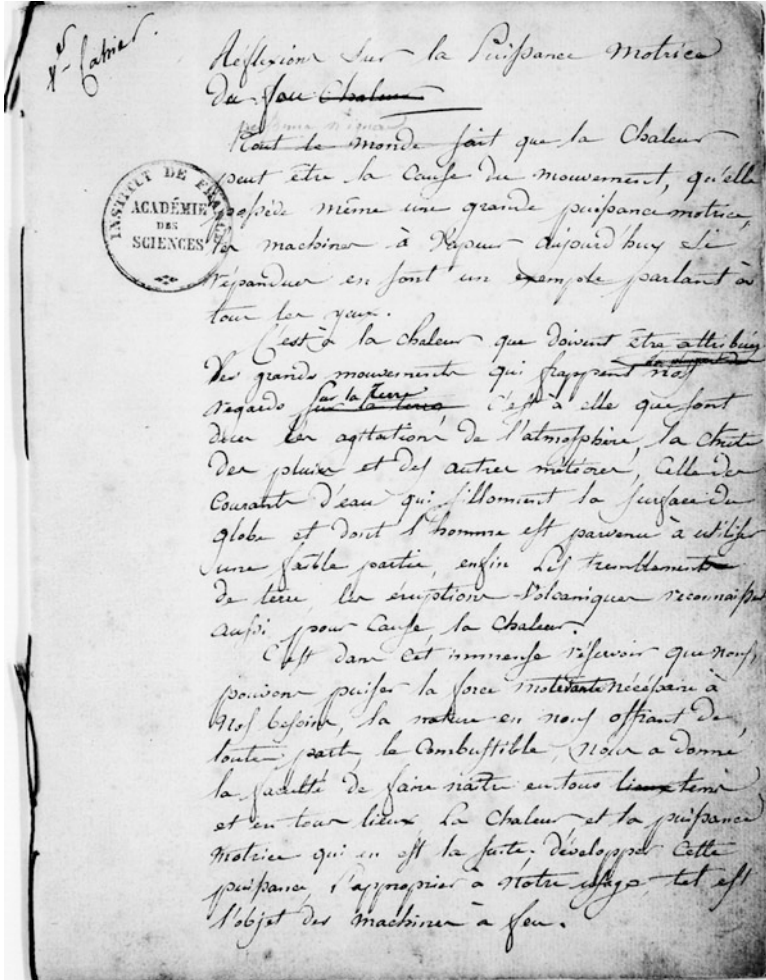 1er Cahier.
Réflexions sur la Puissance Motrice
du feu Chaleur
personne n'ignore
Tout le monde sait que la Chaleur
peut être la Cause du mouvement, qu'elle
possède même une grande puissance motrice,
les machines à Vapeur aujourd'huy si
répandues en sont un exemple parlant à
tous les yeux.
C'est à la chaleur que doivent être attribués
les grands mouvements qui frappent nos
regards sur la terre sur la Terre C'est à elle que sont
dues les agitations de l'atmosphère, la chute
des pluies et des autres météores, Celle des
Courants d'eau qui sillonnent la surface du
globe et dont l'homme est parvenu à utiliser
une faible partie, enfin les tremblements
de terre, les éruptions Volcaniques reconnaissent
aussi pour Cause la Chaleur.
C'est dans cet immense réservoir que nous
pouvons puiser la force nécéssaire à
nos besoins, la nature en nous offrant de
toute part, le Combustible, nous a donné
la faculté de faire naître en tous lieux tems
et en tous lieux La Chaleur et la puissance
motrice qui en est la suite. développer Cette
puissance, l'approprier à Nôtre usage, tel est
l'objet des machines à feu.
INSTITUT DE FRANCE
ACADÉMIE
DES
SCIENCES